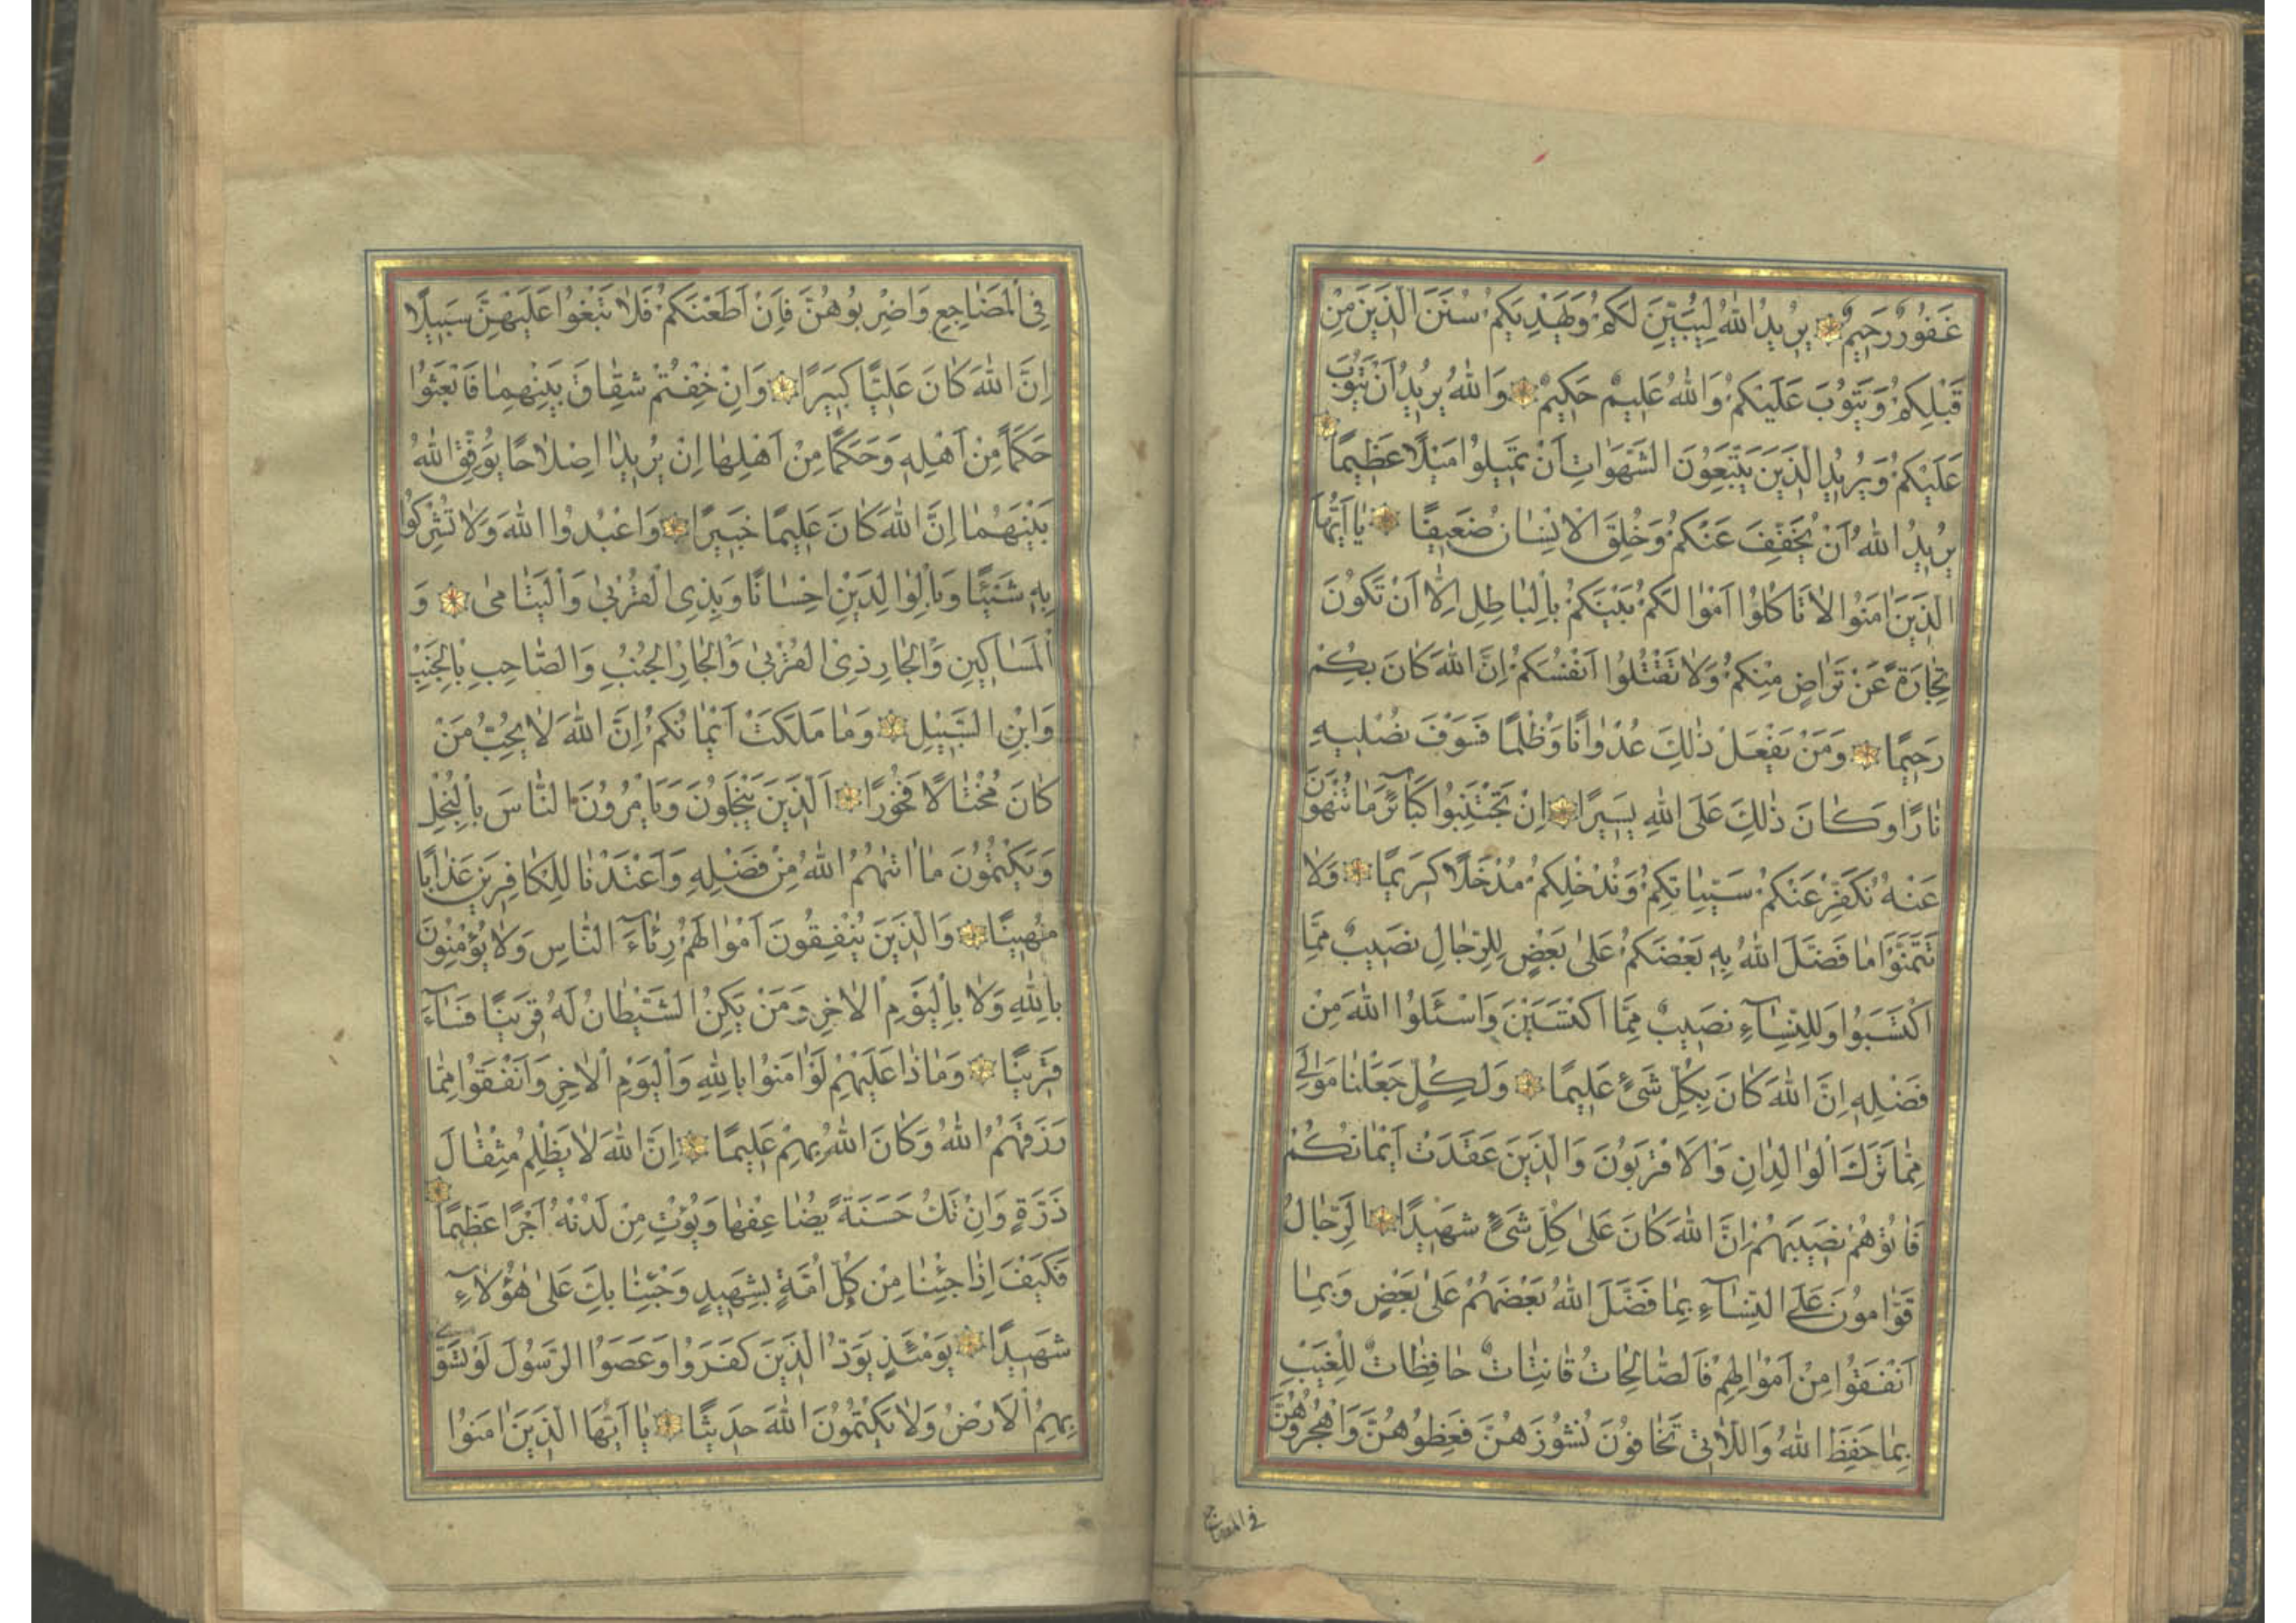 غَفُورٌ رَحِيمٌ يُرِيدُ اللهُ لِيُبَيِّنَ لَكُمْ وَيَهْدِيَكُمْ سُنَنَ الَّذِينَ مِنْ
قَبْلِكُمْ وَيَتُوبَ عَلَيْكُمْ وَاللهُ عَلِيمٌ حَكِيمٌ وَاللهُ يُرِيدُ اَنْ يَتُوبَ
عَلَيْكُمْ وَيُرِيدُ الَّذِينَ يَتَّبِعُونَ الشَّهَوَاتِ اَنْ تَمِيلُوا مَيْلًا عَظِيمًا
يُرِيدُ اللهُ اَنْ يُخَفِّفَ عَنْكُمْ وَخُلِقَ الْاِنْسَانُ ضَعِيفًا يَا اَيُّهَا
الَّذِينَ اٰمَنُوا لَا تَاْكُلُوا اَمْوَالَكُمْ بَيْنَكُمْ بِالْبَاطِلِ اِلَّا اَنْ تَكُونَ
تِجَارَةً عَنْ تَرَاضٍ مِنْكُمْ وَلَا تَقْتُلُوا اَنْفُسَكُمْ اِنَّ اللهَ كَانَ بِكُمْ
رَحِيمًا وَمَنْ يَفْعَلْ ذٰلِكَ عُدْوَانًا وَظُلْمًا فَسَوْفَ نُصْلِيهِ
نَارًا وَكَانَ ذٰلِكَ عَلَى اللهِ يَسِيرًا اِنْ تَجْتَنِبُوا كَبَآئِرَ مَا تُنْهَوْنَ
عَنْهُ نُكَفِّرْ عَنْكُمْ سَيِّئَاتِكُمْ وَنُدْخِلْكُمْ مُدْخَلًا كَرِيمًا وَلَا
تَتَمَنَّوْا مَا فَضَّلَ اللهُ بِهِ بَعْضَكُمْ عَلٰى بَعْضٍ لِلرِّجَالِ نَصِيبٌ مِمَّا
اكْتَسَبُوا وَلِلنِّسَآءِ نَصِيبٌ مِمَّا اكْتَسَبْنَ وَاسْئَلُوا اللهَ مِنْ
فَضْلِهِ اِنَّ اللهَ كَانَ بِكُلِّ شَیْءٍ عَلِيمًا وَلِكُلٍّ جَعَلْنَا مَوَالِيَ
مِمَّا تَرَكَ الْوَالِدَانِ وَالْاَقْرَبُونَ وَالَّذِينَ عَقَدَتْ اَيْمَانُكُمْ
فَاٰتُوهُمْ نَصِيبَهُمْ اِنَّ اللهَ كَانَ عَلٰى كُلِّ شَیْءٍ شَهِيدًا اَلرِّجَالُ
قَوَّامُونَ عَلَى النِّسَآءِ بِمَا فَضَّلَ اللهُ بَعْضَهُمْ عَلٰى بَعْضٍ وَبِمَا
اَنْفَقُوا مِنْ اَمْوَالِهِمْ فَالصَّالِحَاتُ قَانِتَاتٌ حَافِظَاتٌ لِلْغَيْبِ
بِمَا حَفِظَ اللهُ وَاللَّاتِي تَخَافُونَ نُشُوزَهُنَّ فَعِظُوهُنَّ وَاهْجُرُوهُنَّ
في المضاجع
فِي الْمَضَاجِعِ وَاضْرِبُوهُنَّ فَاِنْ اَطَعْنَكُمْ فَلَا تَبْغُوا عَلَيْهِنَّ سَبِيلًا
اِنَّ اللهَ كَانَ عَلِيًّا كَبِيرًا وَاِنْ خِفْتُمْ شِقَاقَ بَيْنِهِمَا فَابْعَثُوا
حَكَمًا مِنْ اَهْلِهِ وَحَكَمًا مِنْ اَهْلِهَا اِنْ يُرِيدَا اِصْلَاحًا يُوَفِّقِ اللهُ
بَيْنَهُمَا اِنَّ اللهَ كَانَ عَلِيمًا خَبِيرًا وَاعْبُدُوا اللهَ وَلَا تُشْرِكُوا
بِهِ شَيْئًا وَبِالْوَالِدَيْنِ اِحْسَانًا وَبِذِي الْقُرْبٰى وَالْيَتَامٰى وَ
الْمَسَاكِينِ وَالْجَارِ ذِي الْقُرْبٰى وَالْجَارِ الْجُنُبِ وَالصَّاحِبِ بِالْجَنْبِ
وَابْنِ السَّبِيلِ وَمَا مَلَكَتْ اَيْمَانُكُمْ اِنَّ اللهَ لَا يُحِبُّ مَنْ
كَانَ مُخْتَالًا فَخُورًا اَلَّذِينَ يَبْخَلُونَ وَيَاْمُرُونَ النَّاسَ بِالْبُخْلِ
وَيَكْتُمُونَ مَا اٰتٰيهُمُ اللهُ مِنْ فَضْلِهِ وَاَعْتَدْنَا لِلْكَافِرِينَ عَذَابًا
مُهِينًا وَالَّذِينَ يُنْفِقُونَ اَمْوَالَهُمْ رِئَآءَ النَّاسِ وَلَا يُؤْمِنُونَ
بِاللهِ وَلَا بِالْيَوْمِ الْاٰخِرِ وَمَنْ يَكُنِ الشَّيْطَانُ لَهُ قَرِينًا فَسَآءَ
قَرِينًا وَمَاذَا عَلَيْهِمْ لَوْ اٰمَنُوا بِاللهِ وَالْيَوْمِ الْاٰخِرِ وَاَنْفَقُوا مِمَّا
رَزَقَهُمُ اللهُ وَكَانَ اللهُ بِهِمْ عَلِيمًا اِنَّ اللهَ لَا يَظْلِمُ مِثْقَالَ
ذَرَّةٍ وَاِنْ تَكُ حَسَنَةً يُضَاعِفْهَا وَيُؤْتِ مِنْ لَدُنْهُ اَجْرًا عَظِيمًا
فَكَيْفَ اِذَا جِئْنَا مِنْ كُلِّ اُمَّةٍ بِشَهِيدٍ وَجِئْنَا بِكَ عَلٰى هٰؤُلَآءِ
شَهِيدًا يَوْمَئِذٍ يَوَدُّ الَّذِينَ كَفَرُوا وَعَصَوُا الرَّسُولَ لَوْ تُسَوّٰى
بِهِمُ الْاَرْضُ وَلَا يَكْتُمُونَ اللهَ حَدِيثًا يَا اَيُّهَا الَّذِينَ اٰمَنُوا